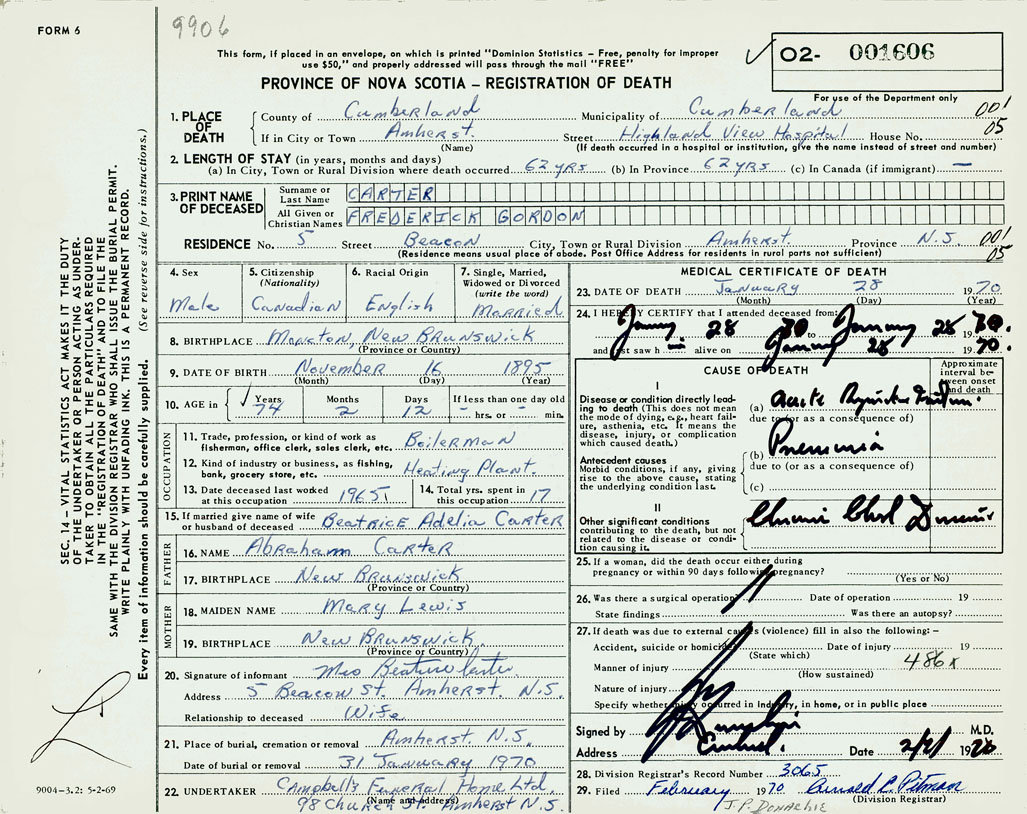 FORM 6
9906
This form, if placed in an envelope, on which is printed "Dominion Statistics – Free, penalty for improper
use $50," and properly addressed will pass through the mail "FREE"
✓ O2- 001606
PROVINCE OF NOVA SCOTIA – REGISTRATION OF DEATH
For use of the Department only
1. PLACE OF DEATH County of Cumberland Municipality of Cumberland 001
If in City or Town Amherst. Street Highland View Hospital House No. 05
(Name) (If death occurred in a hospital or institution, give the name instead of street and number)
2. LENGTH OF STAY (in years, months and days)
(a) In City, Town or Rural Division where death occurred 62 YRS (b) In Province 62 YRS (c) In Canada (if immigrant) —
3. PRINT NAME OF DECEASED Surname or Last Name CARTER
All Given or Christian Names FREDERICK GORDON
RESIDENCE No. 5 Street Beacon City, Town or Rural Division Amherst. Province N.S. 001
(Residence means usual place of abode. Post Office Address for residents in rural parts not sufficient) 05
4. Sex
Male
5. Citizenship
(Nationality)
Canadian
6. Racial Origin
English
7. Single, Married,
Widowed or Divorced
(write the word)
Married
8. BIRTHPLACE New Brunswick
(Province or Country)
9. DATE OF BIRTH November 16 1895
(Month) (Day) (Year)
10. AGE in ✓ Years Months Days If less than one day old
74 2 12 - hrs. or - min.
OCCUPATION
11. Trade, profession, or kind of work as
fisherman, office clerk, sales clerk, etc. Boilerman
12. Kind of industry or business, as fishing,
bank, grocery store, etc. Heating Plant.
13. Date deceased last worked
at this occupation 1965
14. Total yrs. spent in
this occupation 17
15. If married give name of wife
or husband of deceased Beatrice Adelia Carter
FATHER
16. NAME Abraham Carter
17. BIRTHPLACE New Brunswick
(Province or Country)
MOTHER
18. MAIDEN NAME Mary Lewis
19. BIRTHPLACE New Brunswick
(Province or Country)
20. Signature of informant Mrs Beatrice Carter
Address 5 Beacon St. Amherst. N.S.
Relationship to deceased Wife
21. Place of burial, cremation or removal Amherst. N.S.
Date of burial or removal 31 January 1970
22. UNDERTAKER Campbell's Funeral Home Ltd.
(Name and address)
98 Church St. Amherst N.S.
MEDICAL CERTIFICATE OF DEATH
23. DATE OF DEATH January 28 1970
(Month) (Day) (Year)
24. I HEREBY CERTIFY that I attended deceased from:
January 28 70 to January 28 1970.
and last saw h alive on January 28 1970.
CAUSE OF DEATH
Approximate
interval be-
tween onset
and death
I
Disease or condition directly lead-
ing to death (This does not
mean the mode of dying, e.g., heart failure, asthenia, etc. It means the
disease, injury, or complication
which caused death.)
(a) Acute
due to (or as a consequence of)
Antecedent causes
Morbid conditions, if any, giving
rise to the above cause, stating
the underlying condition last.
(b) Pneumonia
due to (or as a consequence of)
(c)
II
Other significant conditions
contributing to the death, but not
related to the disease or condi-
tion causing it.
Chronic
25. If a woman, did the death occur either during
pregnancy or within 90 days following pregnancy?
(Yes or No)
26. Was there a surgical operation? Date of operation 19
State findings Was there an autopsy?
27. If death was due to external causes (violence) fill in also the following: –
Accident, suicide or homicide? Date of injury 19
(State which)
Manner of injury 486x
(How sustained)
Nature of injury
Specify whether injury occurred in industry, in home, or in public place
Signed by M.D.
Address Date 2/2/ 1970
28. Division Registrar's Record Number 3065
29. Filed February 1970 Arnold E. Pitman
(Division Registrar)
J.P. DONACHIE
SEC. 14 – VITAL STATISTICS ACT MAKES IT THE DUTY
OF THE UNDERTAKER OR PERSON ACTING AS UNDER-
TAKER TO OBTAIN ALL THE PARTICULARS REQUIRED
IN THE "REGISTRATION OF DEATH" AND TO FILE THE
SAME WITH THE DIVISION REGISTRAR WHO SHALL ISSUE THE BURIAL PERMIT.
WRITE PLAINLY WITH UNFADING INK. THIS IS A PERMANENT RECORD.
Every item of information should be carefully supplied. (See reverse side for instructions.)
9004–3.2: 5-2-69